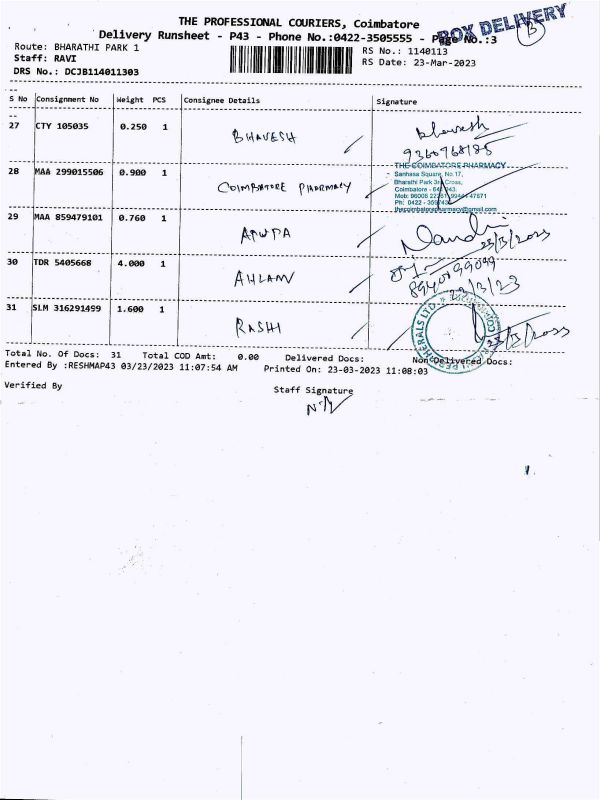 THE PROFESSIONAL COURIERS, Coimbatore
Delivery Runsheet - P43 - Phone No.:0422-3505555 - Page No.:3
BOX DELIVERY
Route: BHARATHI PARK 1
RS No.: 1140113
Staff: RAVI
RS Date: 23-Mar-2023
DRS No.: DCJB114011303
S No Consignment No Weight PCS Consignee Details Signature
27 CTY 105035 0.250 1 BHAVESH Bhavesh
9360768185
28 MAA 299015506 0.900 1 COIMBATORE PHARMACY
THE COIMBATORE PHARMACY
Sanhasa Square, No.17,
Bharathi Park 3rd Cross,
Coimbatore -
Ph: 0422 -
thecoimbatorepharmacy@gmail.com
29 MAA 859479101 0.760 1 Nandhi
23/3/2023
30 TDR 5405668 4.000 1 AHLAM
8940199099
23/3/23
31 SLM 316291499 1.600 1 RASHI
RASHI PERIPHERALS LTD.
23/3/2023
Total No. Of Docs: 31 Total COD Amt: 0.00 Delivered Docs: Non Delivered Docs:
Entered By :RESHMAP43 03/23/2023 11:07:54 AM Printed On: 23-03-2023 11:08:03
Verified By Staff Signature